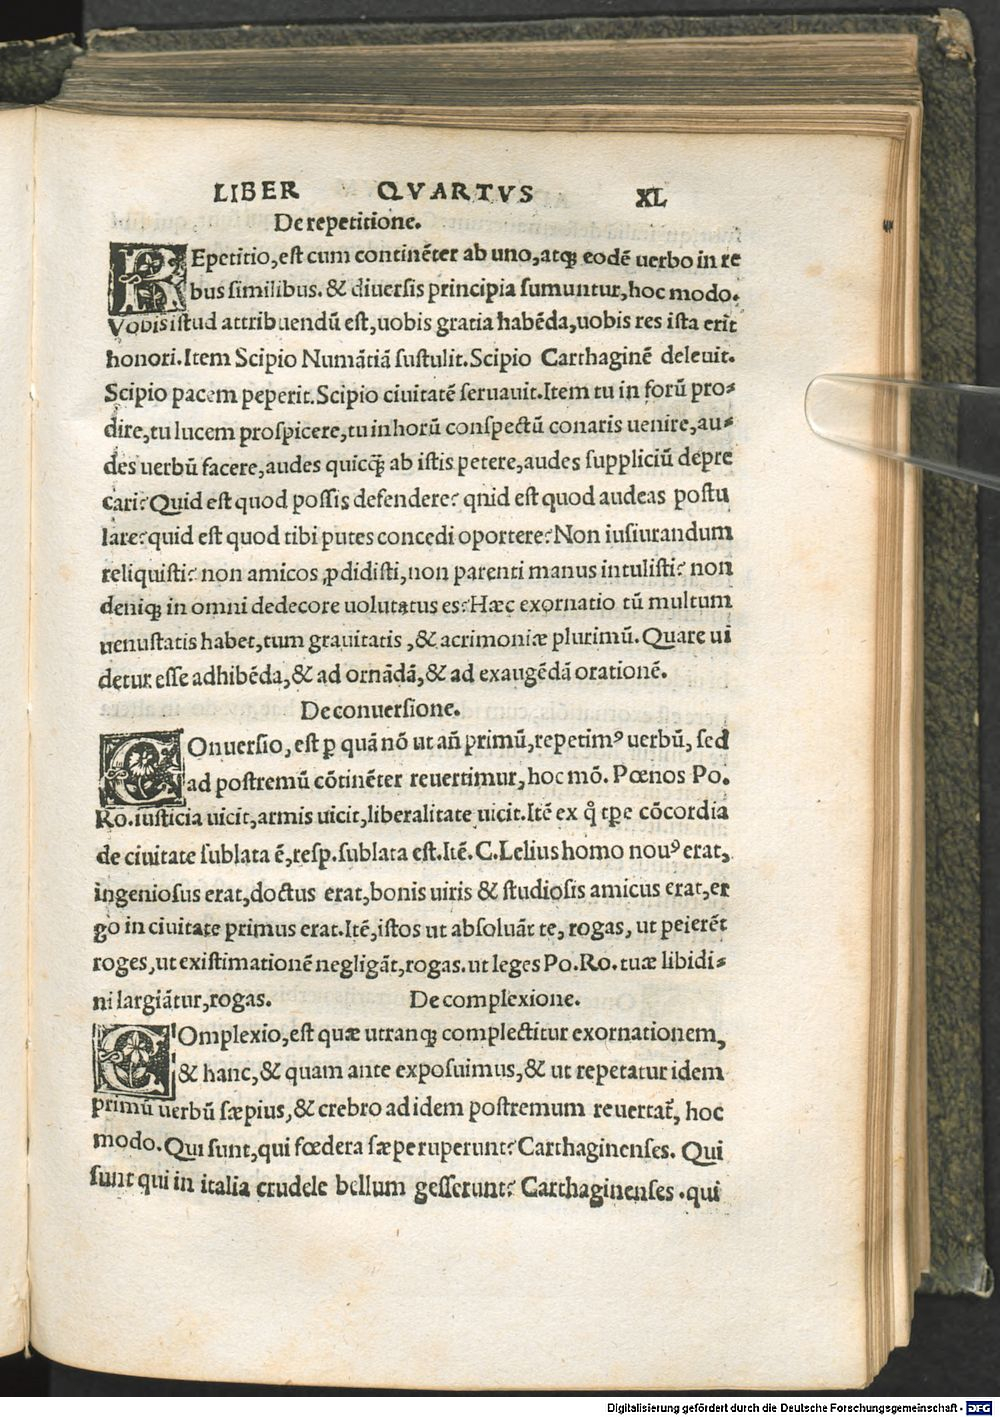 LIBER QVARTVS XL
De repetitione.
REpetitio,est cum continẽter ab uno,atq; eodẽ uerbo in re
bus similibus. & diuersis principia sumuntur,hoc modo.
Vobis istud attribuendũ est,uobis gratia habẽda,uobis res ista erit
honori.Item Scipio Numãtiã sustulit.Scipio Carthaginẽ deleuit.
Scipio pacem peperit.Scipio ciuitatẽ seruauit.Item tu in forũ pro⸗
dire,tu lucem prospicere,tu inhorũ conspectũ conaris uenire,au⸗
des uerbũ facere,audes quicq̃ ab istis petere,audes suppliciũ depre
cari?Quid est quod possis defendere? qnid est quod audeas postu
lare?quid est quod tibi putes concedi oportere?Non iusiurandum
reliquisti? non amicos ꝓdidisti,non parenti manus intulisti? non
deniq; in omni dedecore uolutatus es?Hæc exornatio tũ multum
uenustatis habet,tum grauitatis ,& acrimoniæ plurimũ. Quare ui
detur esse adhibẽda,& ad ornãdã,& ad exaugẽdã orationẽ.
De conuersione.
COnuersio, est ꝑ quã nõ ut añ primũ,repetimꝰ uerbũ, sed
ad postremũ cõtinẽter reuertimur, hoc mõ. Pœnos Po.
Ro.iusticia uicit,armis uicit,liberalitate uicit.Itẽ ex q̊ tꝑe cõcordia
de ciuitate sublata ẽ,resp.sublata est.Itẽ.C.Lelius homo nouꝰ erat,
ingeniosus erat,doctus erat,bonis uiris & studiosis amicus erat,er
go in ciuitate primus erat.Itẽ,istos ut absoluãt te, rogas, ut peierẽt
roges,ut existimationẽ negligãt,rogas.ut leges Po.Ro.tuæ libidi⸗
ni largiãtur,rogas. De complexione.
COmplexio,est quæ utranq; complectitur exornationem,
& hanc,& quam ante exposuimus,& ut repetatur idem
primũ uerbũ sæpius,& crebro ad idem postremum reuertat̃, hoc
modo.Qui sunt,qui fœdera sæpe ruperunt?Carthaginenses. Qui
sunt qui in italia crudele bellum gesserunt? Carthaginenses .qui
Digitalisierung gefördert durch die Deutsche Forschungsgemeinschaft - DFG